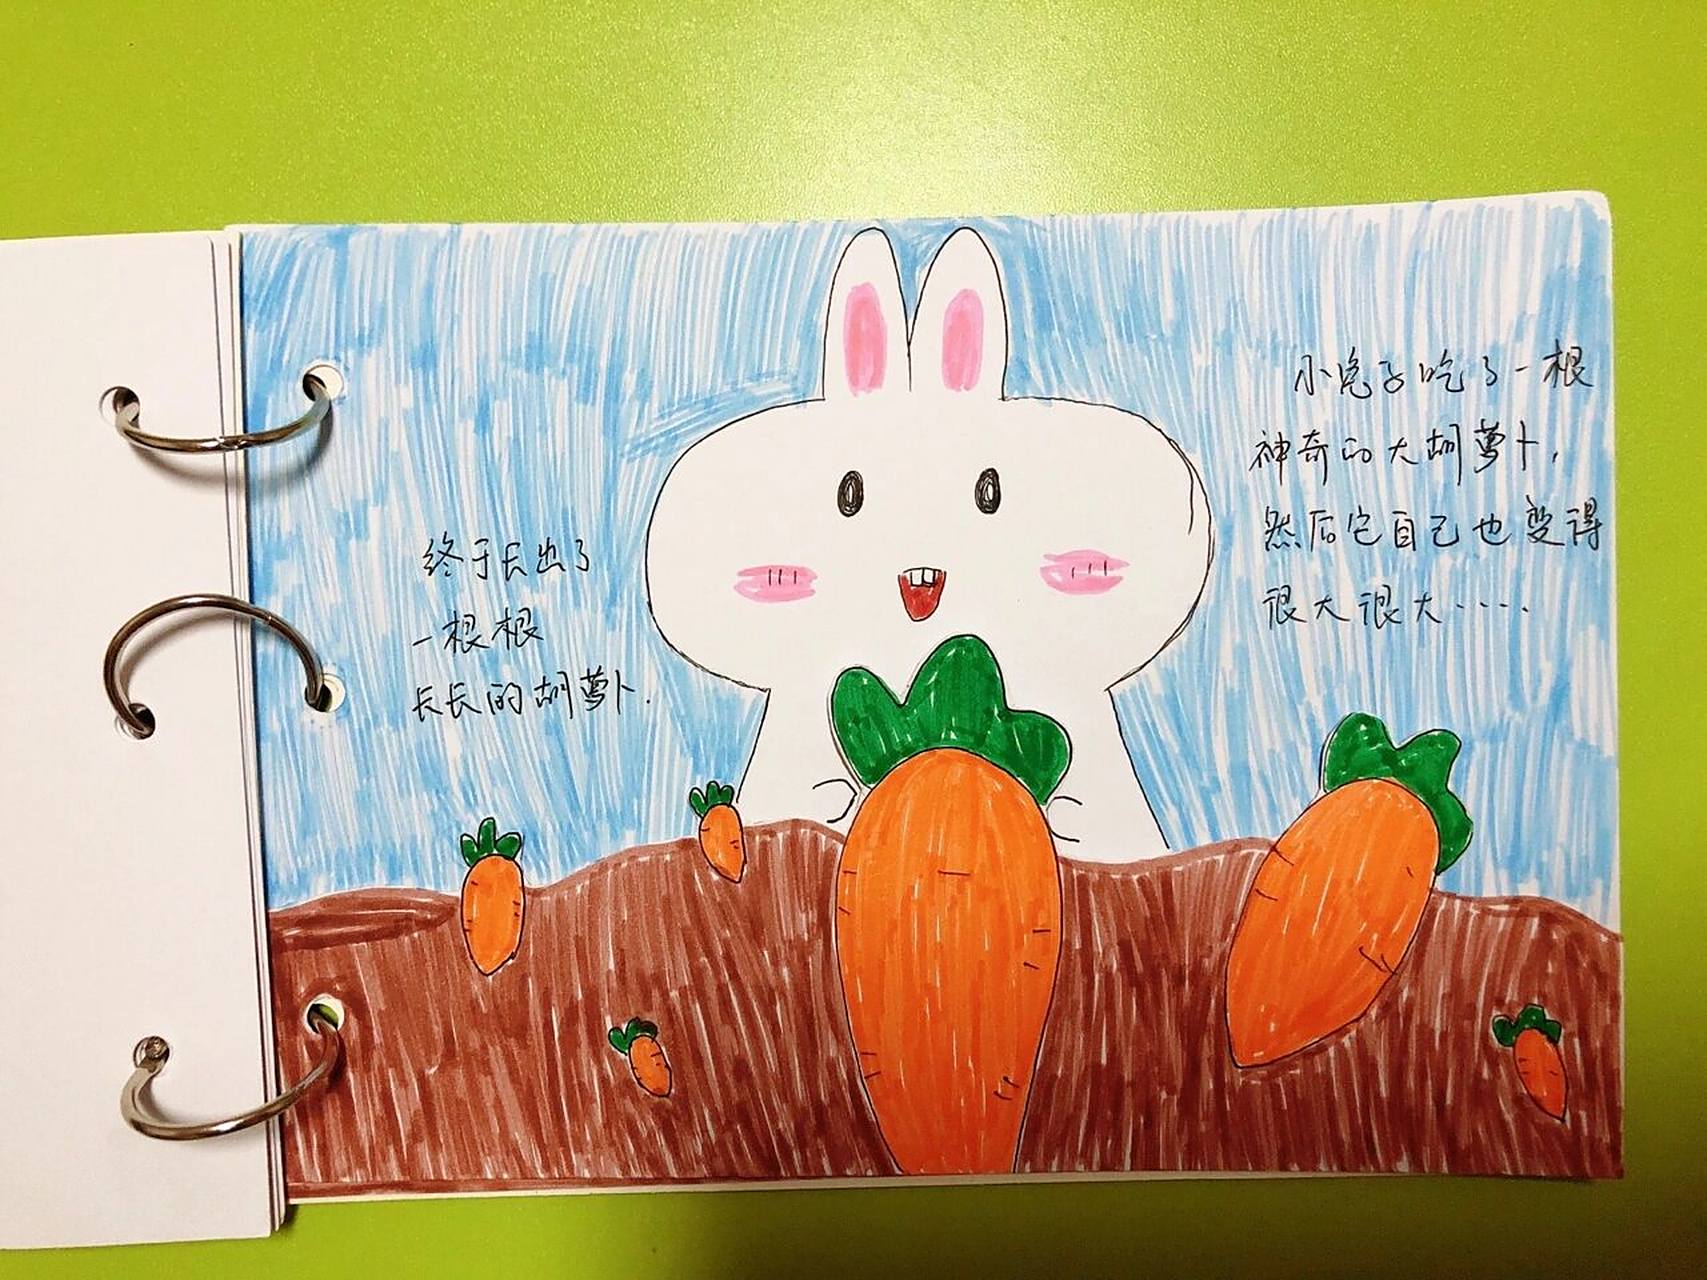 终于长出了
一根根
长长的胡萝卜.
小兔子吃了一根
神奇的大胡萝卜,
然后它自己也变得
很大很大·····